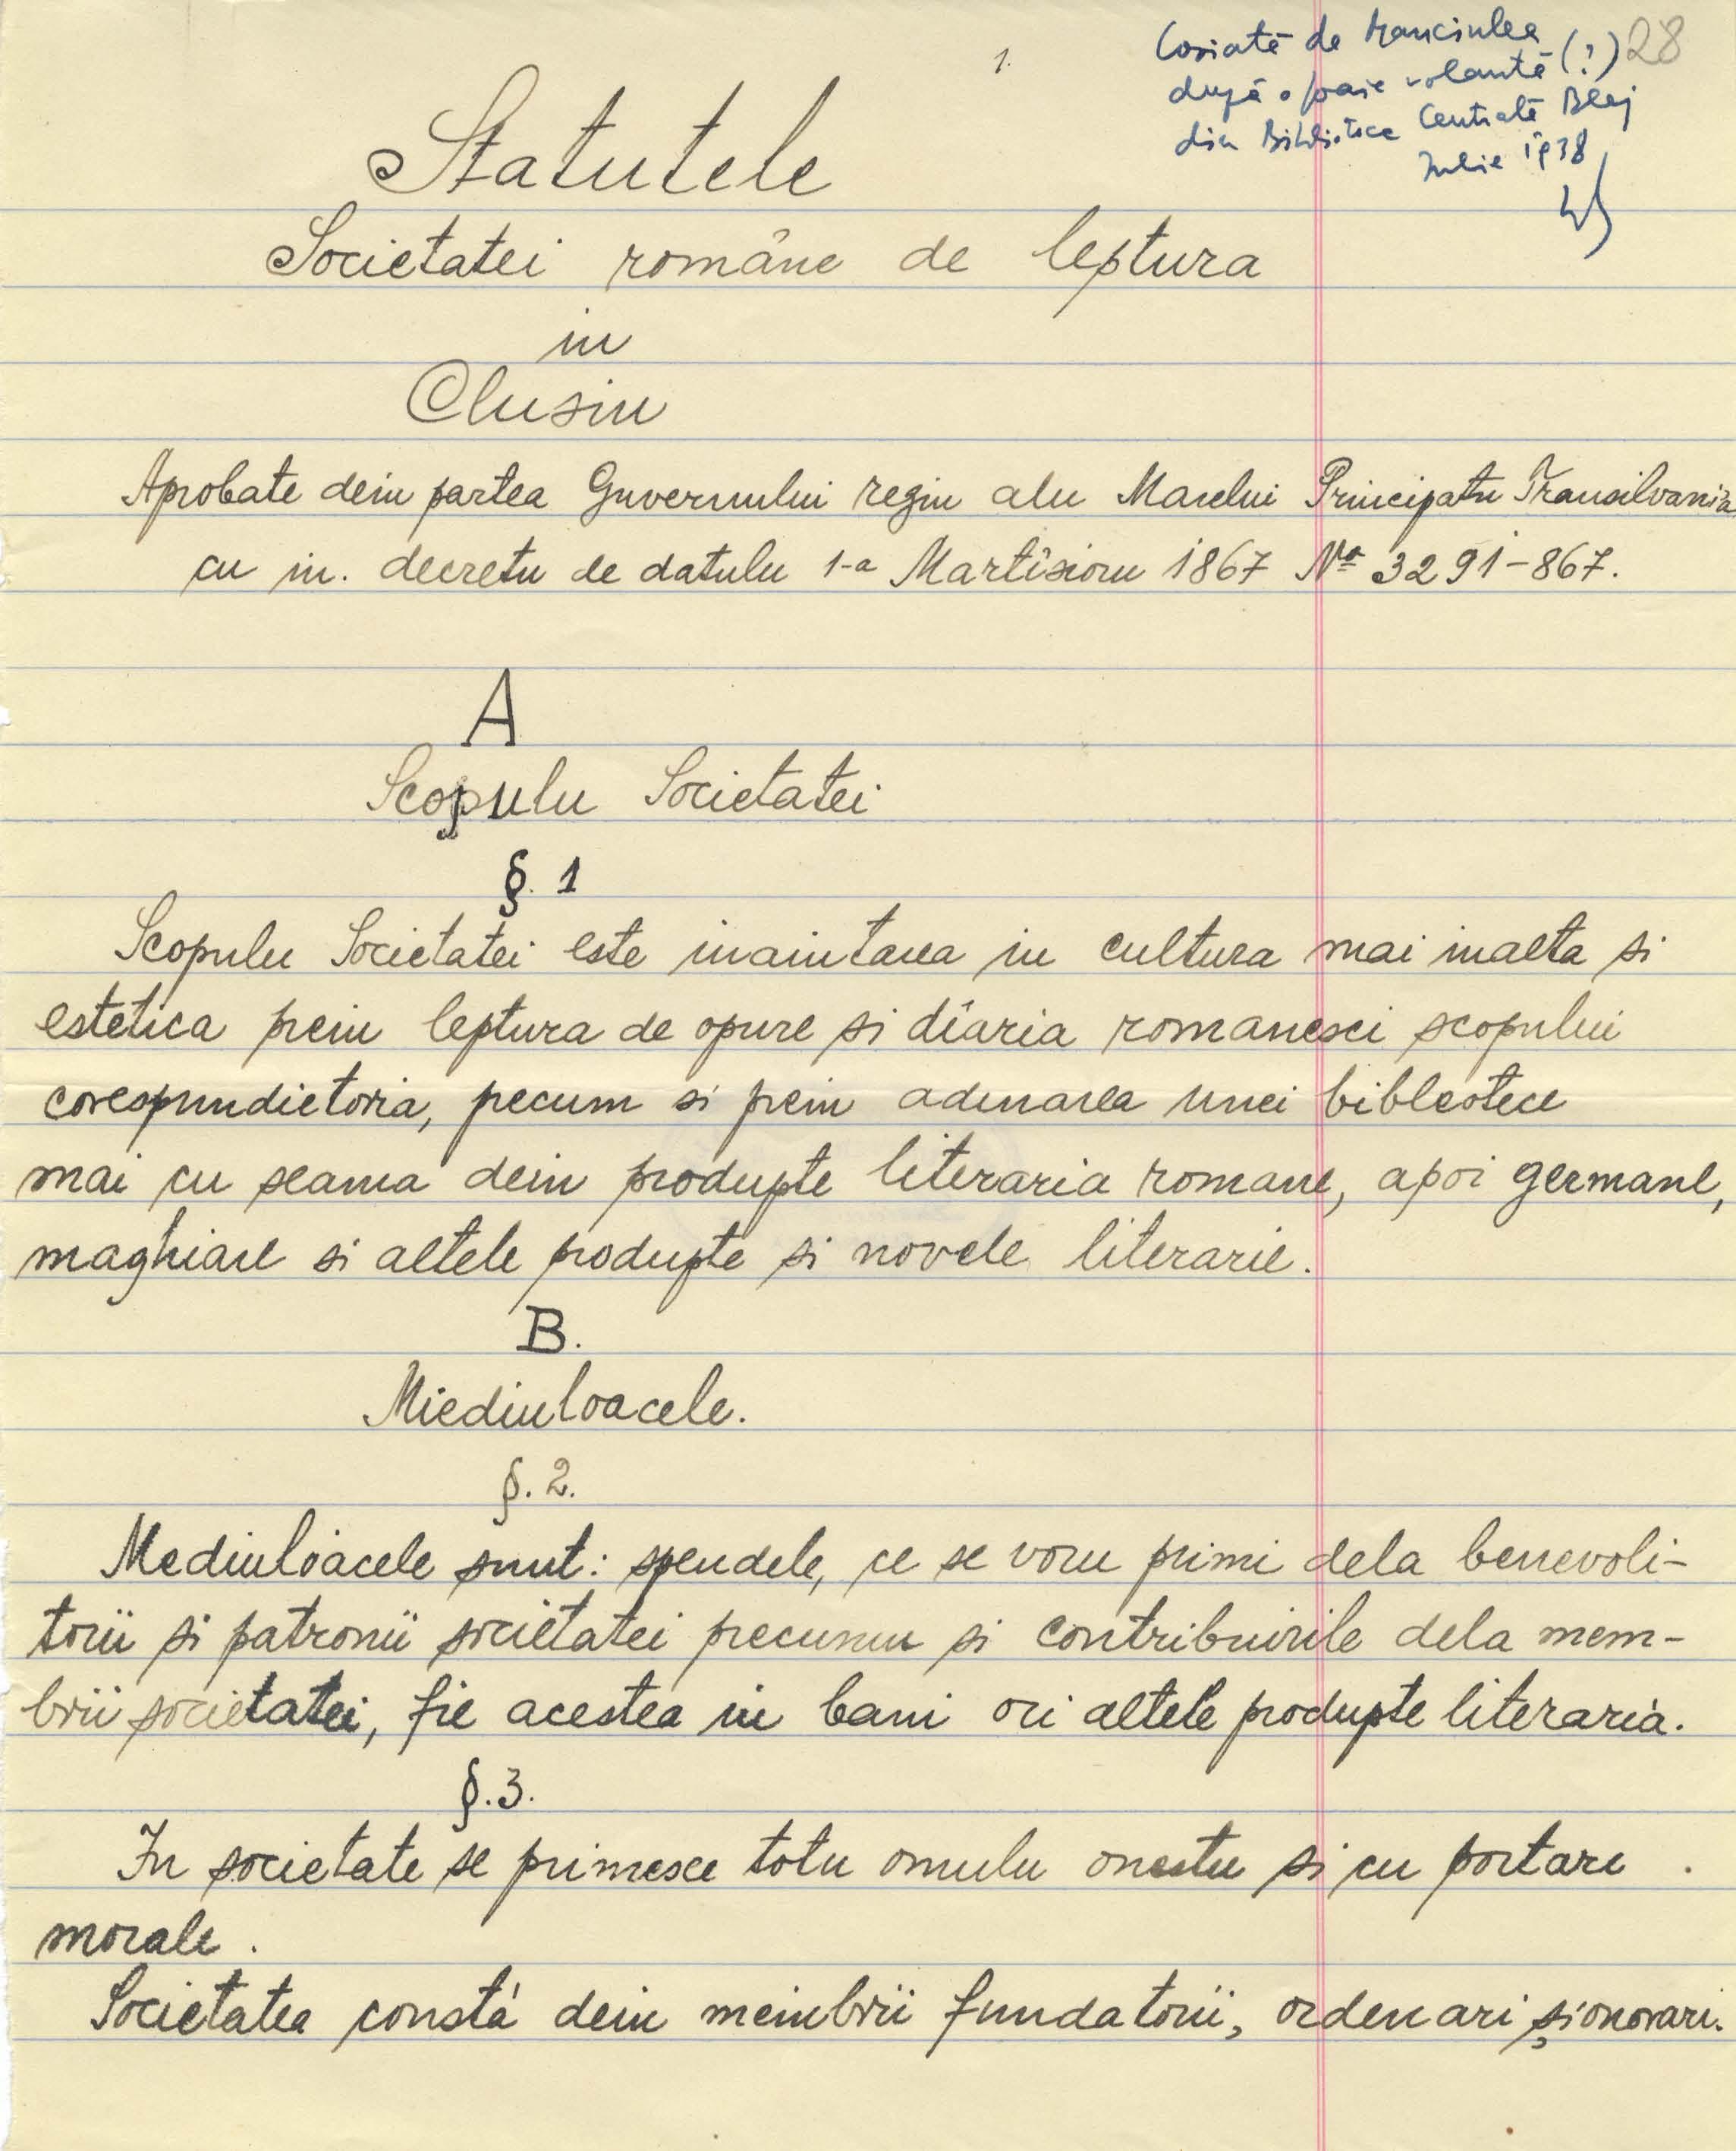 1.
28
Copiată de Manciulea
după o foaie volantă (?)
din Biblioteca Centrală Blaj
Iulie 1938
Statutele
Societatei române de leptura
in
Clusiu
Aprobate dein partea Guvernului regiu alu Marelui Principatu Transilvania
cu in. decretu de datulu 1-a Martîsioru 1867 No 3291-867.
A
Scopulu Societatei
§. 1
Scopulu Societatei este inaintarea in cultura mai inalta si
estetica prein leptura de opure si dîaria romanesci scopului
corespundietoria, precum si prein adunarea unei bibleotece
mai cu seama dein produpte literaria romane, apoi germane,
maghiare si altele produpte si novele literarie.
B.
Miediuloacele.
§. 2.
Mediulóacele sunt: spendele, ce se voru primi dela benevoli-
torii si patronii societatei precumu si contribuirile dela mem-
brii societatei, fie acestea in bani ori altele produpte literaria.
§. 3.
In societate se primesce totu omulu onestu si cu portare
morale.
Societatea constá dein meinbrii fundatorii, ordenari și onorari.